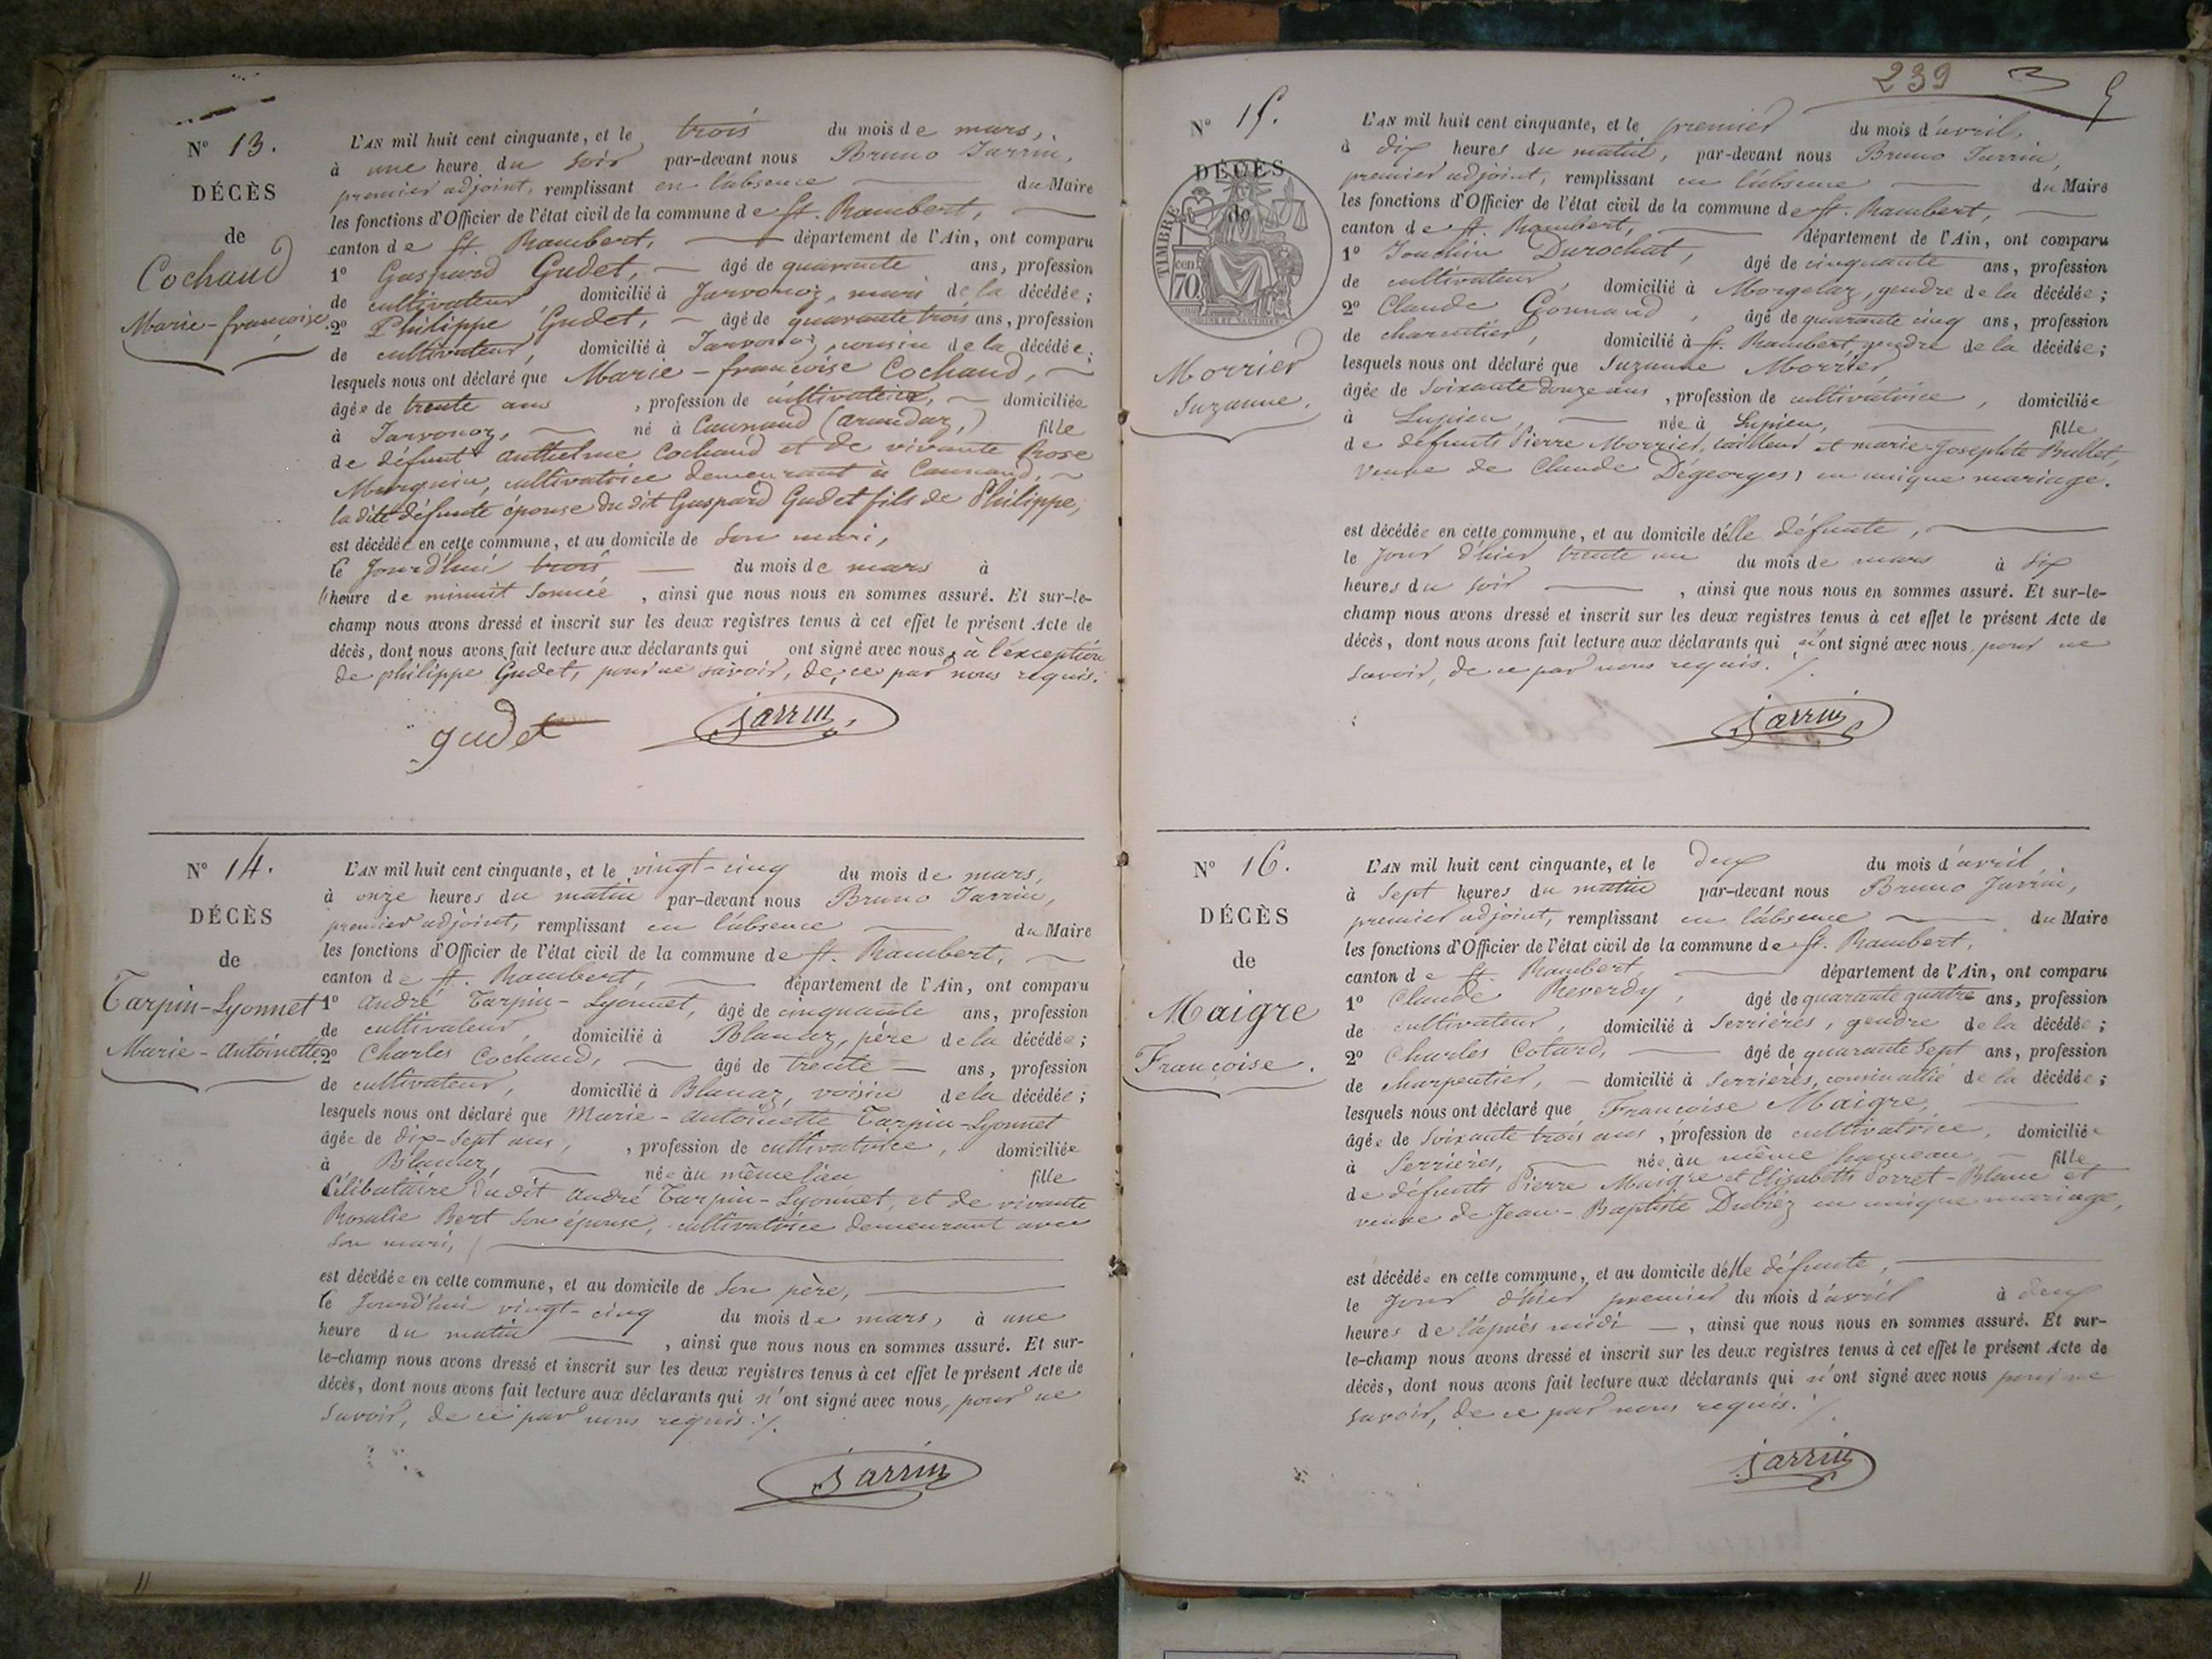 Nº 13.
DÉCÈS
de
Cochaud
Marie-françoise.
L'AN mil huit cent cinquante, et le trois du mois de mars,
à une heure du soir par-devant nous Bruno Jarrin,
premier adjoint, remplissant en l'absence du Maire
les fonctions d'Officier de l'état civil de la commune de St. Rambert,
canton de St. Rambert, département de l'Ain, ont comparu
1º Gaspard Gudet, âgé de quarante ans, profession
de cultivateur, domicilié à Javornoz, mari de la décédée;
2º Philippe Gudet, âgé de quarante trois ans, profession
de cultivateur, domicilié à Javornoz, cousin de la décédée;
lesquels nous ont déclaré que Marie-françoise Cochaud,
âgée de trente ans, profession de cultivatrice, domiciliée
à Javornoz, né à (arandaz,) fille
de défunt anthelme Cochaud et de vivante Rose
cultivatrice demeurant à
la dite défunte épouse du dit Gaspard Gudet fils de Philippe,
est décédée en cette commune, et au domicile de son mari,
le jourd'hui trois du mois de mars à
heure de minuit sonnée, ainsi que nous nous en sommes assuré. Et sur-le-
champ nous avons dressé et inscrit sur les deux registres tenus à cet effet le présent Acte de
décès, dont nous avons fait lecture aux déclarants qui ont signé avec nous, à l'exception
de philippe Gudet, pour ne savoir, de ce par nous requis.
gudet Jarrin
Nº 14.
DÉCÈS
de
Tarpin-Lyonnet
Marie-antoinette
L'AN mil huit cent cinquante, et le vingt-cinq du mois de mars,
à onze heures du matin par-devant nous Bruno Jarrin,
premier adjoint, remplissant en l'absence du Maire
les fonctions d'Officier de l'état civil de la commune de St. Rambert,
canton de St. Rambert, département de l'Ain, ont comparu
1º André Tarpin-Lyonnet, âgé de cinquante ans, profession
de cultivateur, domicilié à Blanaz, père de la décédée;
2º Charles Cochaud, âgé de trente ans, profession
de cultivateur, domicilié à Blanaz, voisin de la décédée;
lesquels nous ont déclaré que Marie-antoinette Tarpin-Lyonnet
âgée de dix-sept ans, profession de cultivatrice, domiciliée
à Blanaz, née au même lieu fille
Célibataire dudit André Tarpin-Lyonnet, et de vivante
Rosalie Bert son épouse, cultivatrice demeurant avec
son mari,
est décédée en cette commune, et au domicile de son père,
le jourd'hui vingt-cinq du mois de mars, à une
heure du matin, ainsi que nous nous en sommes assuré. Et sur-
le-champ nous avons dressé et inscrit sur les deux registres tenus à cet effet le présent Acte de
décès, dont nous avons fait lecture aux déclarants qui n'ont signé avec nous, pour ne
savoir, de ce par nous requis ./.
Jarrin
11
239 3
Nº 15.
DÉCÈS
de
TIMBRE
70 cen
Morrier
Suzanne.
L'AN mil huit cent cinquante, et le premier du mois d'avril,
à dix heures du matin, par-devant nous Bruno Jarrin,
premier adjoint, remplissant en l'absence du Maire
les fonctions d'Officier de l'état civil de la commune de St. Rambert,
canton de St. Rambert, département de l'Ain, ont comparu
1º Joachin Durochat, âgé de cinquante ans, profession
de cultivateur, domicilié à Morgelaz, gendre de la décédée;
2º Claude Gonnand, âgé de quarante cinq ans, profession
de charcutier, domicilié à St. Rambert, gendre de la décédée;
lesquels nous ont déclaré que Suzanne Morrier,
âgée de soixante douze ans, profession de cultivatrice, domiciliée
à Lupieu, née à Lupieu, fille
de défunts Pierre Morrier, tailleur et marie-Josephte Bullet,
veuve de Claude Dégeorges, en unique mariage.
est décédée en cette commune, et au domicile d'elle défunte,
le jour d'hier trente un du mois de mars à six
heures du soir, ainsi que nous nous en sommes assuré. Et sur-le-
champ nous avons dressé et inscrit sur les deux registres tenus à cet effet le présent Acte de
décès, dont nous avons fait lecture aux déclarants qui n'ont signé avec nous, pour ne
savoir, de ce par nous requis. /.
Jarrin
Nº 16.
DÉCÈS
de
Maigre
Françoise.
L'AN mil huit cent cinquante, et le deux du mois d'avril,
à sept heures du matin par-devant nous Bruno Jarrin,
premier adjoint, remplissant en l'absence du Maire
les fonctions d'Officier de l'état civil de la commune de St. Rambert,
canton de St. Rambert, département de l'Ain, ont comparu
1º Claude Reverdy, âgé de quarante quatre ans, profession
de cultivateur, domicilié à Serrières, gendre de la décédée;
2º Charles Cotard, âgé de quarante sept ans, profession
de charpentier, domicilié à Serrières, cousin allié de la décédée;
lesquels nous ont déclaré que Françoise Maigre,
âgée de soixante trois ans, profession de cultivatrice, domiciliée
à Serrières, née au même hameau, fille
de défunts Pierre Maigre et Elizabeth Porret-Blanc et
veuve de Jean-Baptiste Dubiez en unique mariage,
est décédée en cette commune, et au domicile d'elle défunte,
le jour d'hier premier du mois d'avril à deux
heures de l'après midi, ainsi que nous nous en sommes assuré. Et sur-
le-champ nous avons dressé et inscrit sur les deux registres tenus à cet effet le présent Acte de
décès, dont nous avons fait lecture aux déclarants qui n'ont signé avec nous pour ne
savoir, de ce par nous requis. /.
Jarrin